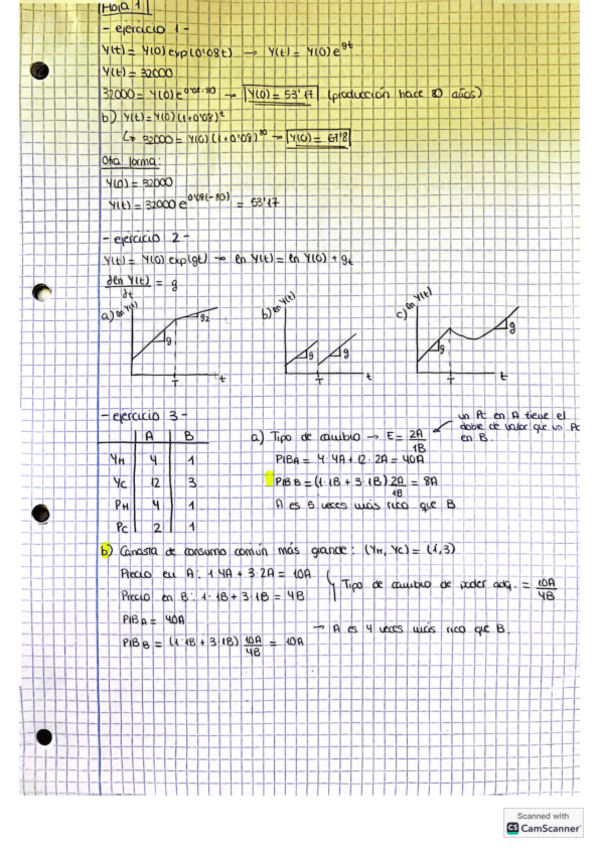 Hoja 1
- ejercicio 1 -
Y(t) = Y(0) exp(0'08t) → Y(t) = Y(0) e^gt
Y(t) = 32000
32000 = Y(0) e^0'08·80 → Y(0) = 53'17 (producción hace 80 años)
b) Y(t) = Y(0) (1+0'08)^t
↳ 32000 = Y(0) (1+0'08)^80 → Y(0) = 67'8
Otra forma:
Y(0) = 32000
Y(t) = 32000 e^0'08(-80) = 53'17
- ejercicio 2 -
Y(t) = Y(0) exp(gt) → ln Y(t) = ln Y(0) + gt
dln Y(t)/dt = g
a) ln Y(t) g g2 T t
b) ln Y(t) g g T t
c) ln Y(t) g g T t
- ejercicio 3 -
A B
YH 4 1
YC 12 3
PH 4 1
PC 2 1
a) Tipo de cambio → E = 2A/1B
un PC en A tiene el
doble de valor que un PC
en B.
PIBA = 4·4A + 12·2A = 40A
PIBB = (1·1B + 3·1B) 2A/1B = 8A
A es 5 veces más rico que B
b) Canasta de consumo común más grande: (YH, YC) = (1,3)
Precio en A: 1·4A + 3·2A = 10A
Precio en B: 1·1B + 3·1B = 4B
Tipo de cambio de poder adq. = 10A/4B
PIBA = 40A
PIBB = (1·1B + 3·1B) 10A/4B = 10A
→ A es 4 veces más rico que B.
Scanned with
CS CamScanner